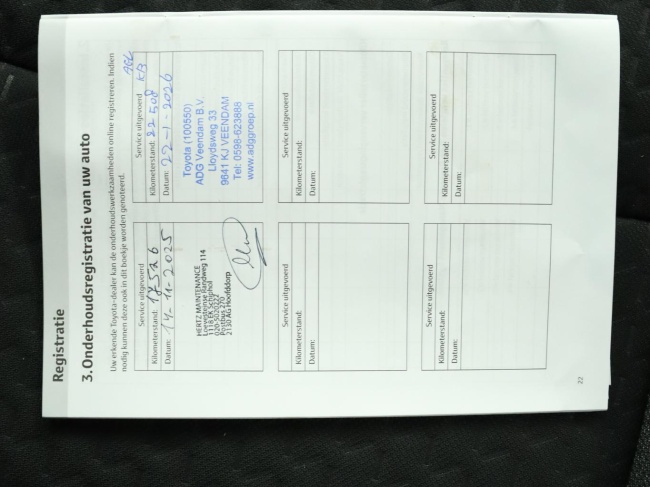 Registratie
3. Onderhoudsregistratie van uw auto
Uw erkende Toyota-dealer kan de onderhoudswerkzaamheden online registreren. Indien
nodig kunnen deze ook in dit boekje worden genoteerd.
Service uitgevoerd
Kilometerstand: 17526
Datum: 14-11-2025
HERTZ MAINTENANCE
Loevesteinse Randweg 114
1118 EK Schiphol
020-5020222
Postbus 270
2130 AG Hoofddorp
Service uitgevoerd
Kilometerstand: 22508
Datum: 22-1-2026
Toyota (100550)
ADG Veendam B.V.
Lloydsweg 33
9641 KJ VEENDAM
Tel: 0598-623888
www.adggroep.nl
Service uitgevoerd
Kilometerstand:
Datum:
Service uitgevoerd
Kilometerstand:
Datum:
Service uitgevoerd
Kilometerstand:
Datum:
Service uitgevoerd
Kilometerstand:
Datum:
22